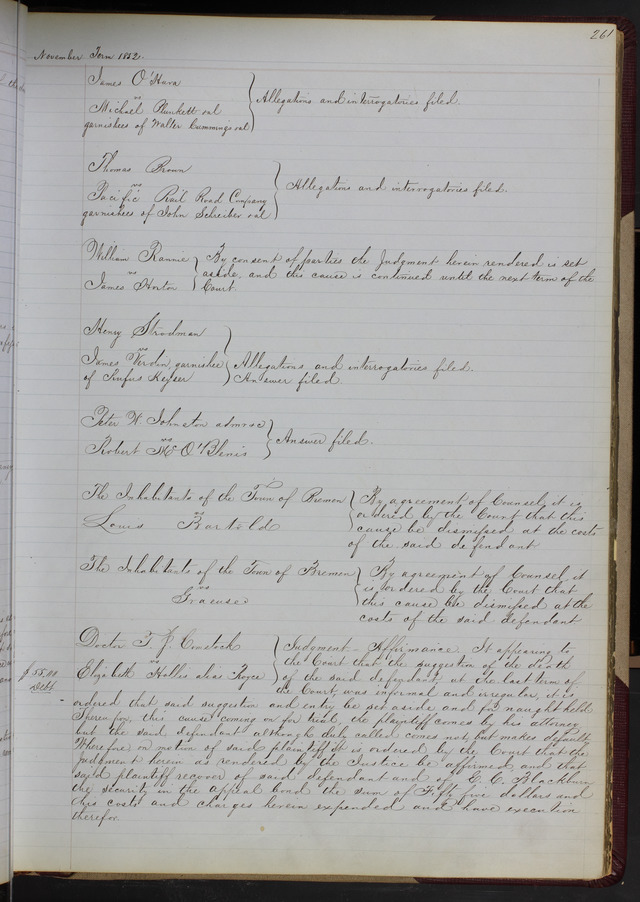 261
November Term 1852.
James O'Hara
vs
Michael Plunkett et al
garnishees of Walter Cummings et al
Allegations and interrogatories filed
Thomas Brown
vs
Pacific Rail Road Company
garnishees of John Scheiber et al
Allegations and interrogatories filed.
William Rannie
vs
James Horton
By consent of parties the Judgment herein rendered is set
aside, and this cause is continued until the next term of the
Court.
Henry Strodman
vs
James Verdin, garnishee
of Rufus Keyser
Allegations and interrogatories filed.
Answer filed.
Peter W. Johnston admr &c
vs
Robert McO'Blenis
Answer filed.
The Inhabitants of the Town of Bremen
vs
Louis Bartold
By agreement of Counsel, it is
ordered by the Court that this
cause be dismissed at the costs
of the said defendant
The Inhabitants of the Town of Bremen
vs
Graeuser
By agreement of Counsel, it
is, ordered by the Court that
this cause be dismissed at the
costs of the said defendant
Doctor T. J. Comstock
vs
Elizabeth Hollis alias Joyce
$55.00
Debt.
Judgment Affirmance. It appearing to
the Court that the suggestion of the death
of the said defendant, at the last term of
the Court, was informal and irregular, it is
ordered that said suggestion and entry be set aside and for naught held.
Therefore, this cause coming on for trial, the plaintiff comes by his attorney
but the said defendant although duly called comes not, but makes default.
Wherefore on motion of said plaintiff it is ordered by the Court that the
judgment herein as rendered by the Justice be affirmed, and that
said plaintiff recover of said defendant and of E. C. Blackburn
the security in the appeal bond the sum of Fifty five dollars and
his costs and charges herein expended and have execution
therefor.